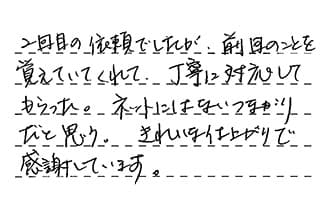 2回目の依頼でしたが、前回のことを
覚えていてくれて、丁寧に対応して
もらった。ネットにはないつながり
だと思う。きれいな仕上がりで
感謝しています。